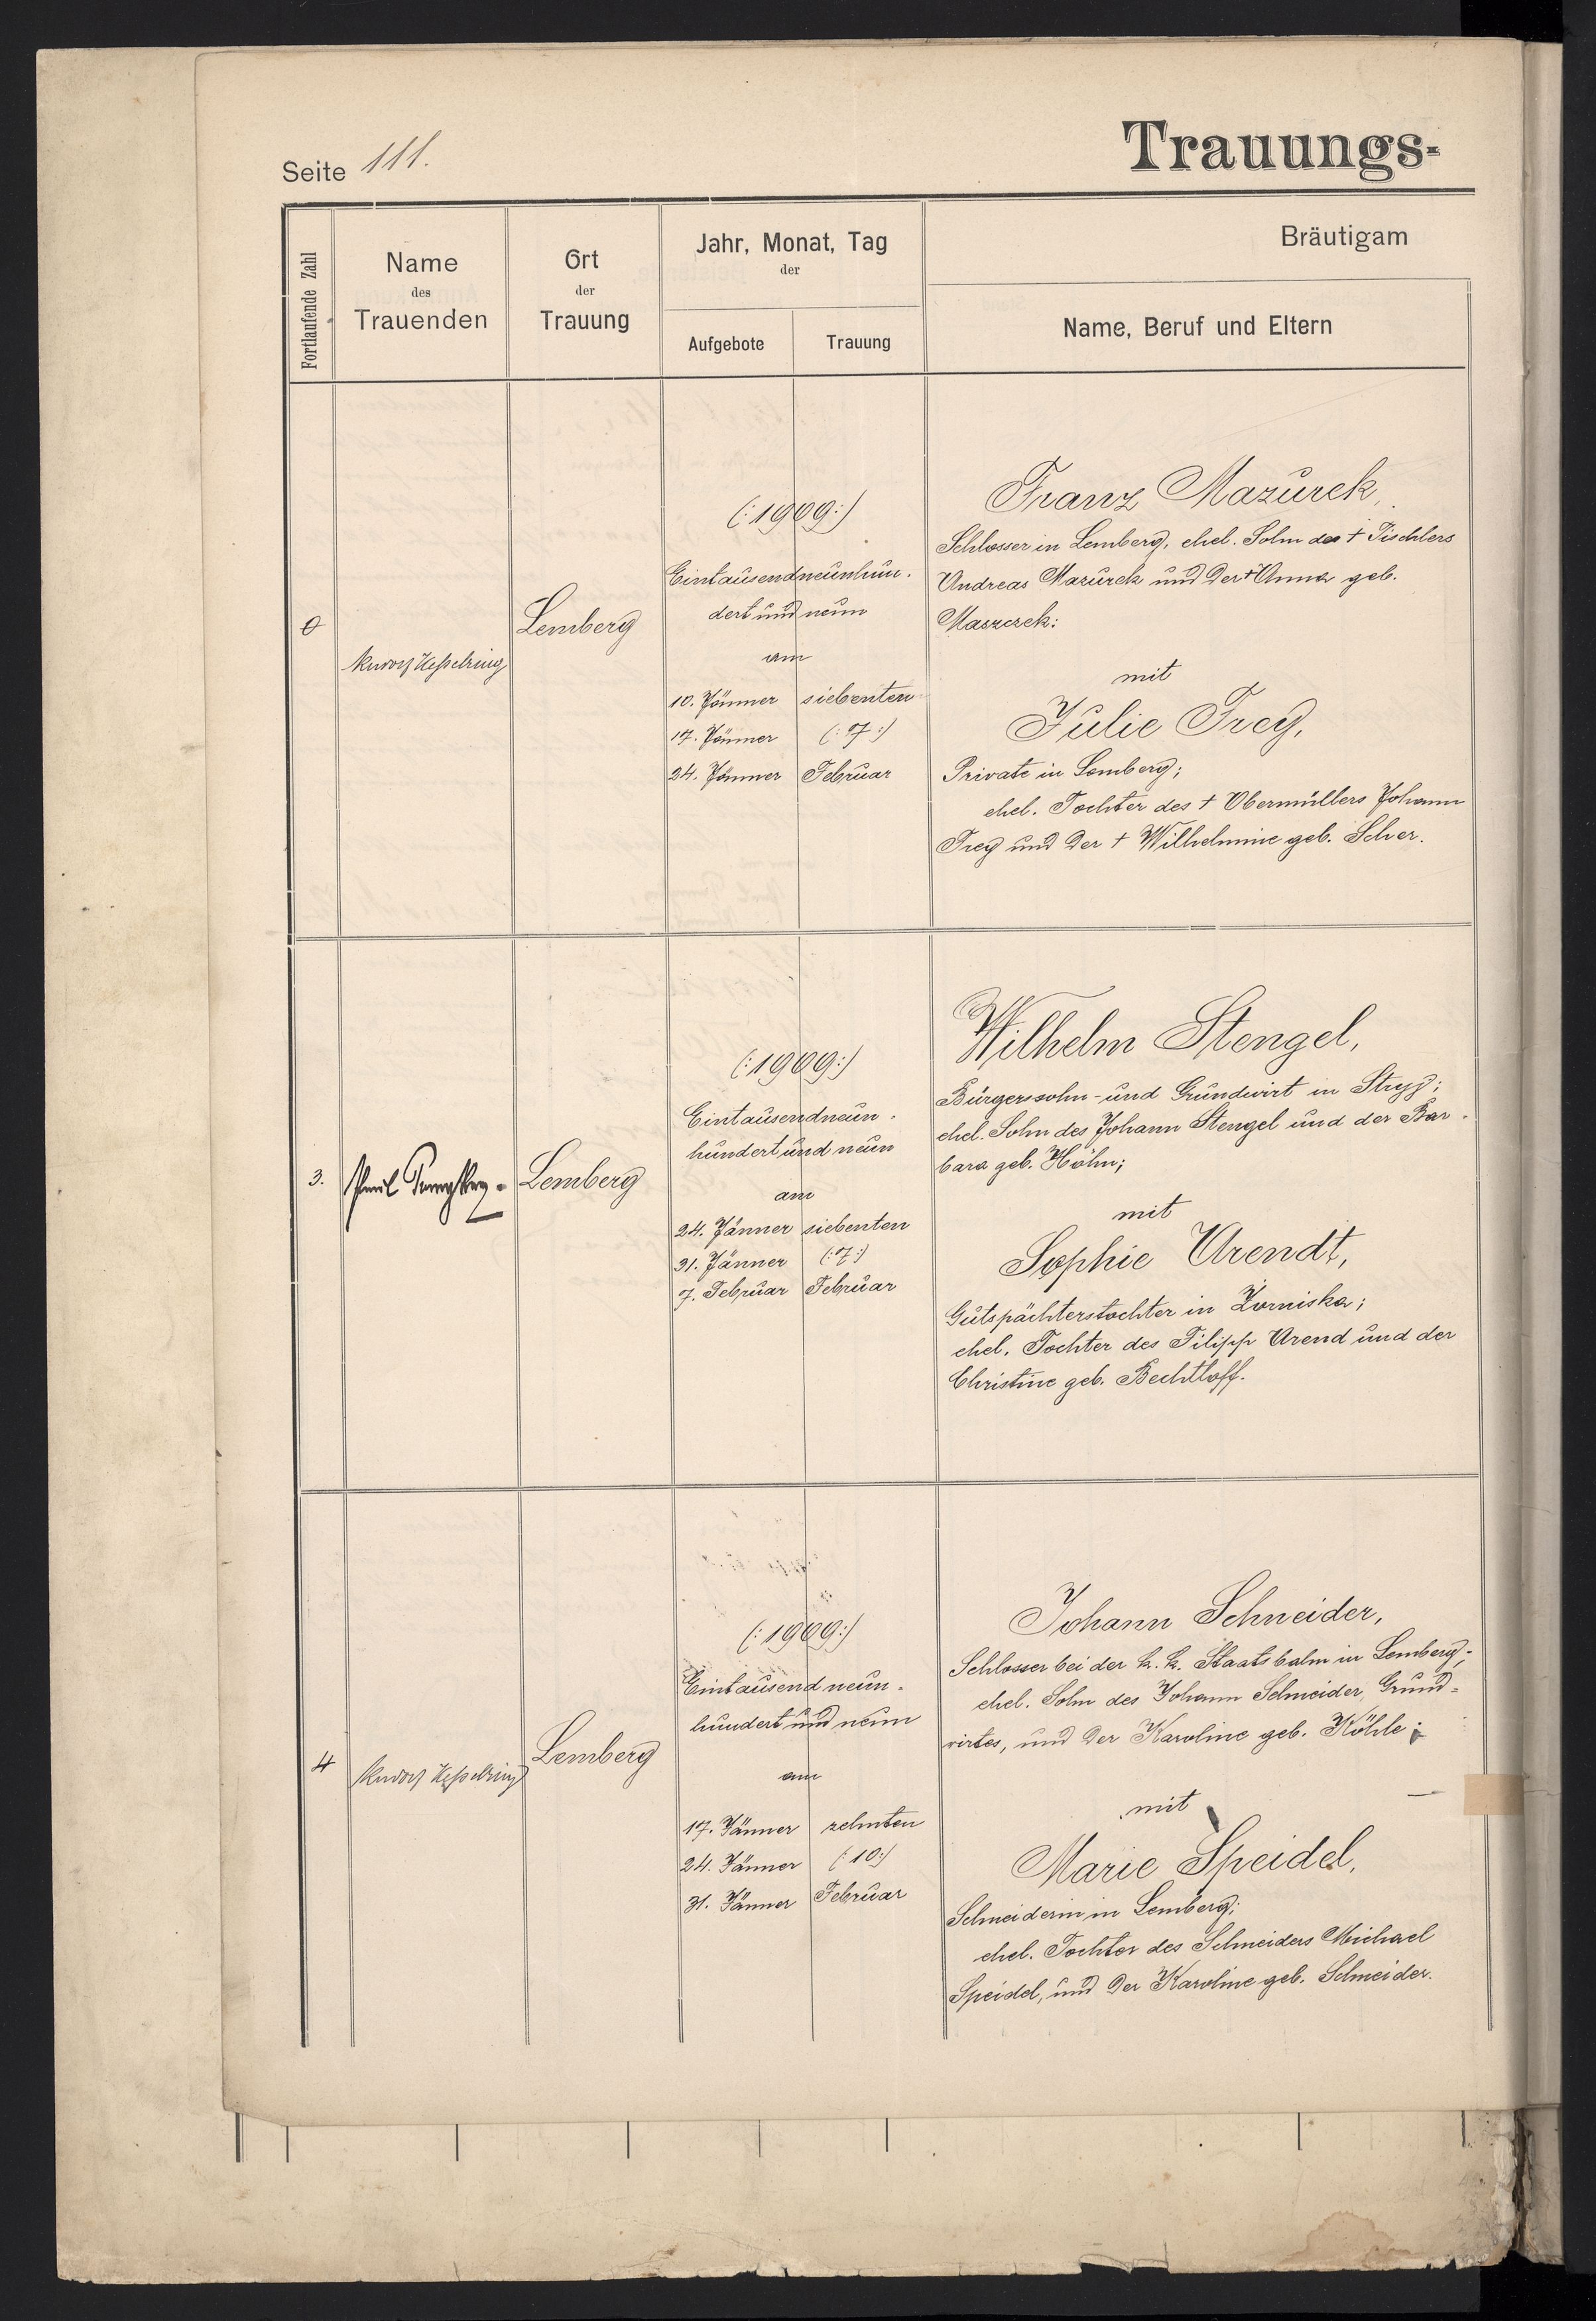 Trauungs-
Seite 111.
Fortlaufende Zahl
Name
des
Trauenden
Ort
der
Trauung
Jahr, Monat, Tag
der
Aufgebote
Trauung
Bräutigam
Name, Beruf und Eltern
Rudolf Kesselring
Lemberg
(:1909:)
Eintausendneunhun-
dert und neun
am
10. Jänner siebenten
17. Jänner (:7:)
24. Jänner Februar
Franz Mazurek,
Schlosser in Lemberg, ehel. Sohn des † Tischlers
Andreas Mazurek und der † Anna geb.
Maszczek:
mit
Julie Frey,
Private in Lemberg;
ehel. Tochter des † Obermüllers Johann
Frey und der † Wilhelmine geb. Scher.
3.
Lemberg
(:1909:)
Eintausendneun-
hundert und neun
am
24. Jänner siebenten
31. Jänner (:7:)
7. Februar Februar
Wilhelm Stengel,
Bürgerssohn- und Grundwirt in Stryj;
ehel. Sohn des Johann Stengel und der Bar-
bara geb. Höhn;
mit
Sophie Arendt,
Gutspächterstochter in Zorniska;
ehel. Tochter des Filipp Arend und der
Christine geb. Bechtloff.
4
Rudolf Kesselring
Lemberg
(:1909:)
Eintausend neun-
hundert und neun
am
17. Jänner zehnten
24. Jänner (:10:)
31. Jänner Februar
Johann Schneider,
Schlosser bei der k. k. Staatsbahn in Lemberg;
ehel. Sohn des Johann Schneider, Grund-
wirtes, und der Karoline geb. Köhle;
mit
Marie Speidel,
Schneiderin in Lemberg;
ehel. Tochter des Schneiders Michael
Speidel, und der Karoline geb. Schneider.